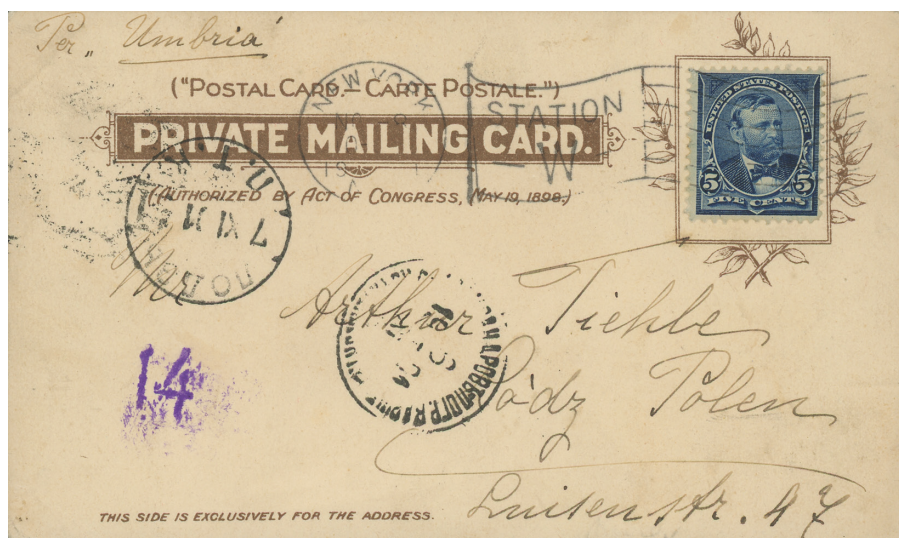 Per „ Umbria
("POSTAL CARD.— CARTE POSTALE.")
PRIVATE MAILING CARD.
(AUTHORIZED BY ACT OF CONGRESS, MAY 19, 1898.)
NEW YORK
STATION
W
UNITED STATES POSTAGE
5 5
FIVE CENTS
П.Т.К.
7 XI
Arthur Tichle
Lódz Polen
Luisenstr. 47
14
THIS SIDE IS EXCLUSIVELY FOR THE ADDRESS.